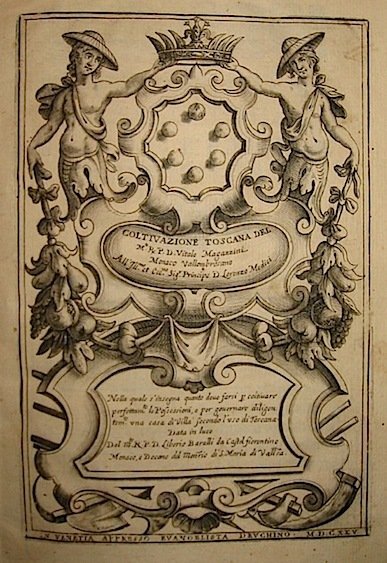 COLTIVAZIONE TOSCANA DEL
M.to R. P. D. Vitale Magazzini
Monaco Vallombrosano
All' Ill.mo et Ecc.mo Sig.r Principe D. Lorenzo Medici
Nella quale s'insegna quanto deue farsi p coltiuare
perfettam.te le Possessioni, e per gouernare diligen
tem.te vna casa di Villa secondo l'vso di Toscana
Data in luce
Dal M.R.P.D. Liberio Baralli da Castel fiorentino
Monaco, e Decano del Mon.rio di S. Maria di Vall'a
IN VENETIA APPRESSO EVANGELISTA DEVCHINO. M.DCXXV.